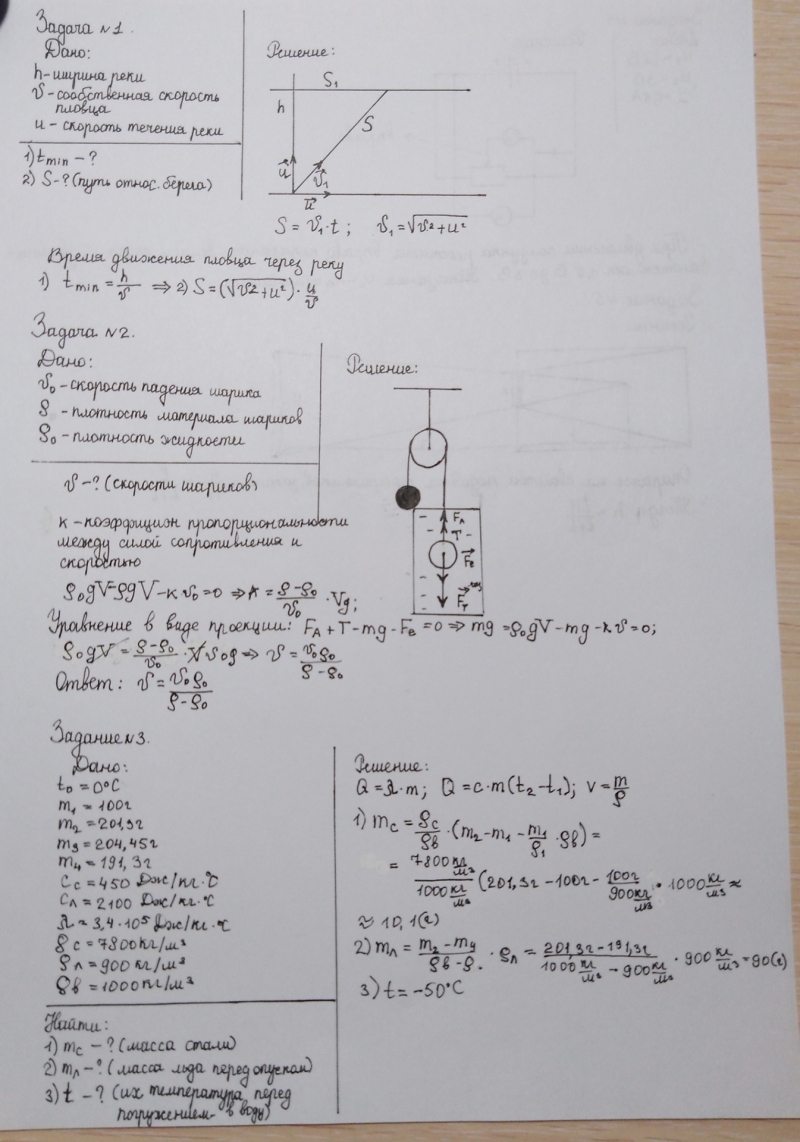 Задача №1.
Дано:
h-ширина реки
v-сообственная скорость
пловца
u - скорость течения реки
1) tmin - ?
2) S-? (путь относ. берега)
Решение:
S₁
h
S
u⃗
v⃗₁
u⃗
S = v₁·t; v₁=√(v²+u²)
Время движения пловца через реку
1) tmin = h/v ⇒ 2) S=(√(v²+u²))·u/v
Задача №2.
Дано:
v₀-скорость падения шарика
ρ - плотность материала шариков
ρ₀ - плотность жидкости
v-? (скорости шариков)
Решение:
Fᴀ
T
F⃗в
F⃗т
к - коэффициэн пропорциональности
между силой сопротивления и
скоростью
ρ₀gV-ρgV-кv₀=0 ⇒ к = (ρ-ρ₀)/v₀ · Vg;
Уравнение в виде проекции: Fᴀ+T-mg-Fв=0 ⇒ mg=ρ₀gV-mg-кv=0;
ρ₀gV = (ρ-ρ₀)/v₀ · Vvog ⇒ v = v₀ρ₀/(ρ-ρ₀)
Ответ: v = v₀ρ₀/(ρ-ρ₀)
Задание №3.
Дано:
t₀ = 0°C
m₁ = 100г
m₂ = 201,3г
m₃ = 204,45г
m₄ = 191,3г
Cс = 450 Дж/кг·°C
Cл = 2100 Дж/кг·°C
λ = 3,4·10⁵ Дж/кг·°C
ρс = 7800кг/м³
ρл = 900 кг/м³
ρв = 1000кг/м³
Найти:
1) mс - ? (масса стали)
2) mл - ? (масса льда перед опуском)
3) t - ? (их температура перед
погружением в воду)
Решение:
Q = λ·m; Q = c·m(t₂-t₁); v = m/ρ
1) mс = ρс/ρв · (m₂-m₁-m₁/ρ₁·ρв) =
= 7800 кг/м³ / 1000 кг/м³ (201,3г-100г-100г/900кг/м³ · 1000 кг/м³ ≈
≈ 10,1(г)
2) mл = (m₂-m₄)/(ρв-ρ.) · ρл = (201,3г-191,3г)/(1000 кг/м³ - 900 кг/м³) · 900 кг/м³ = 90(г)
3) t = -50°C